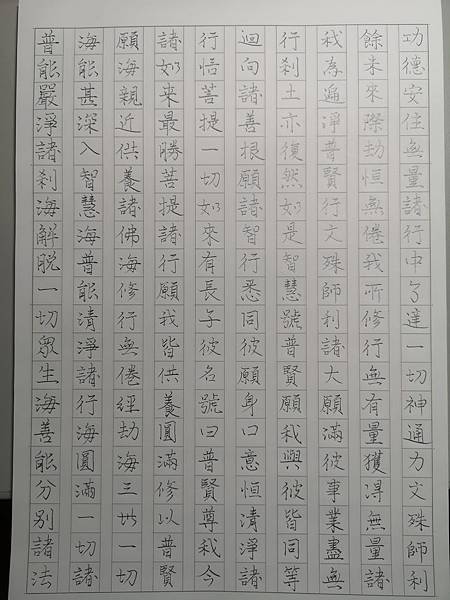 功德安住無量諸行中了達一切神通力文殊師利
餘未來際劫恒無倦我所修行無有量獲得無量諸
我為遍淨普賢行文殊師利諸大願滿彼事業盡無
行剎土亦復然如是智慧號普賢願我與彼皆同等
迴向諸善根願諸智行悉同彼願身口意恒清淨諸
行悟菩提一切如來有長子彼名號曰普賢尊我今
諸如來最勝菩提諸行願我皆供養圓滿修以普賢
願海親近供養諸佛海修行無倦經劫海三世一切
海能甚深入智慧海普能清淨諸行海圓滿一切諸
普能嚴淨諸剎海解脫一切眾生海善能分別諸法